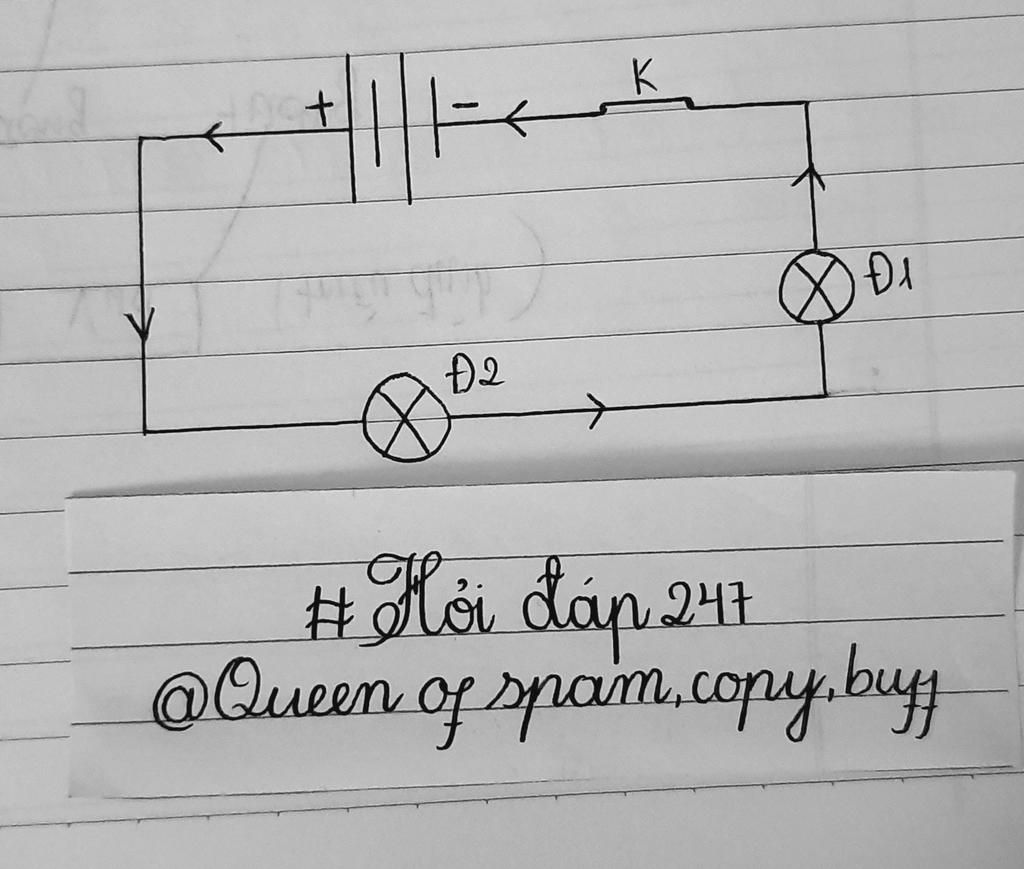 + - K
Đ1
Đ2
# Hỏi đáp 247
@Queen of spam, copy, buff